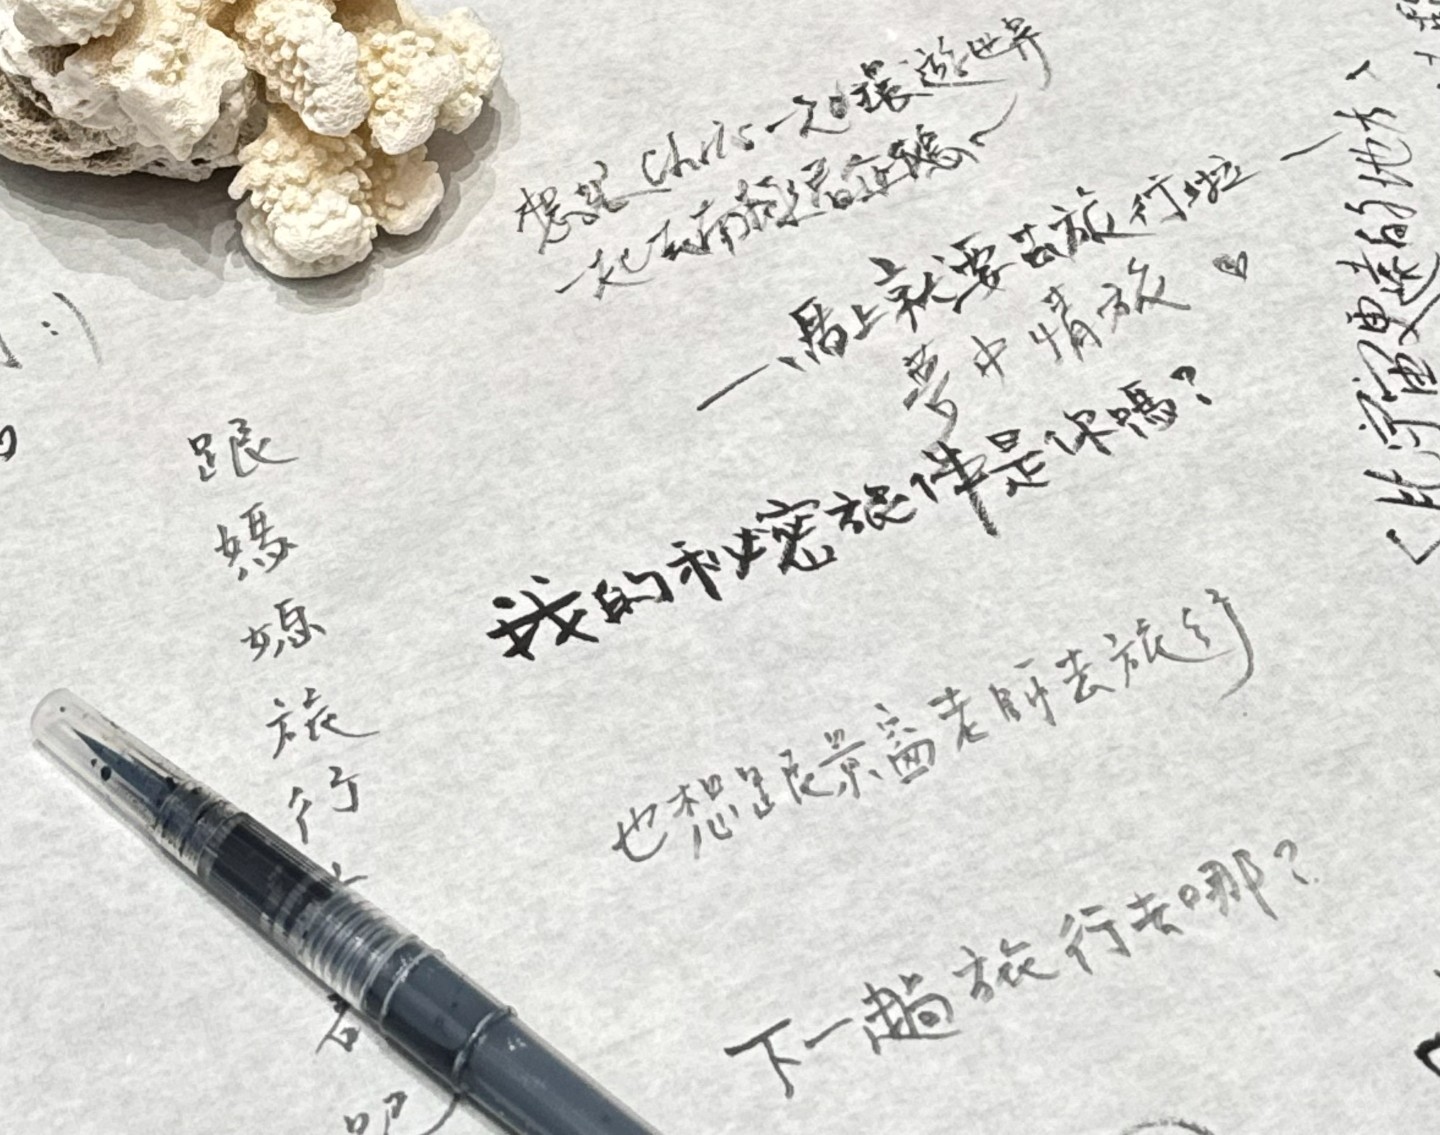 想跟Chris一起環遊世界
一起去南極看企鵝~
—、馬上就要去旅行啦—
夢中情旅♡
我的秘密旅伴是你嗎?
也想跟景窗老師去旅行
下一趟旅行去哪?
跟媽媽旅行
吧
:)
<比宇宙更遠的地方>